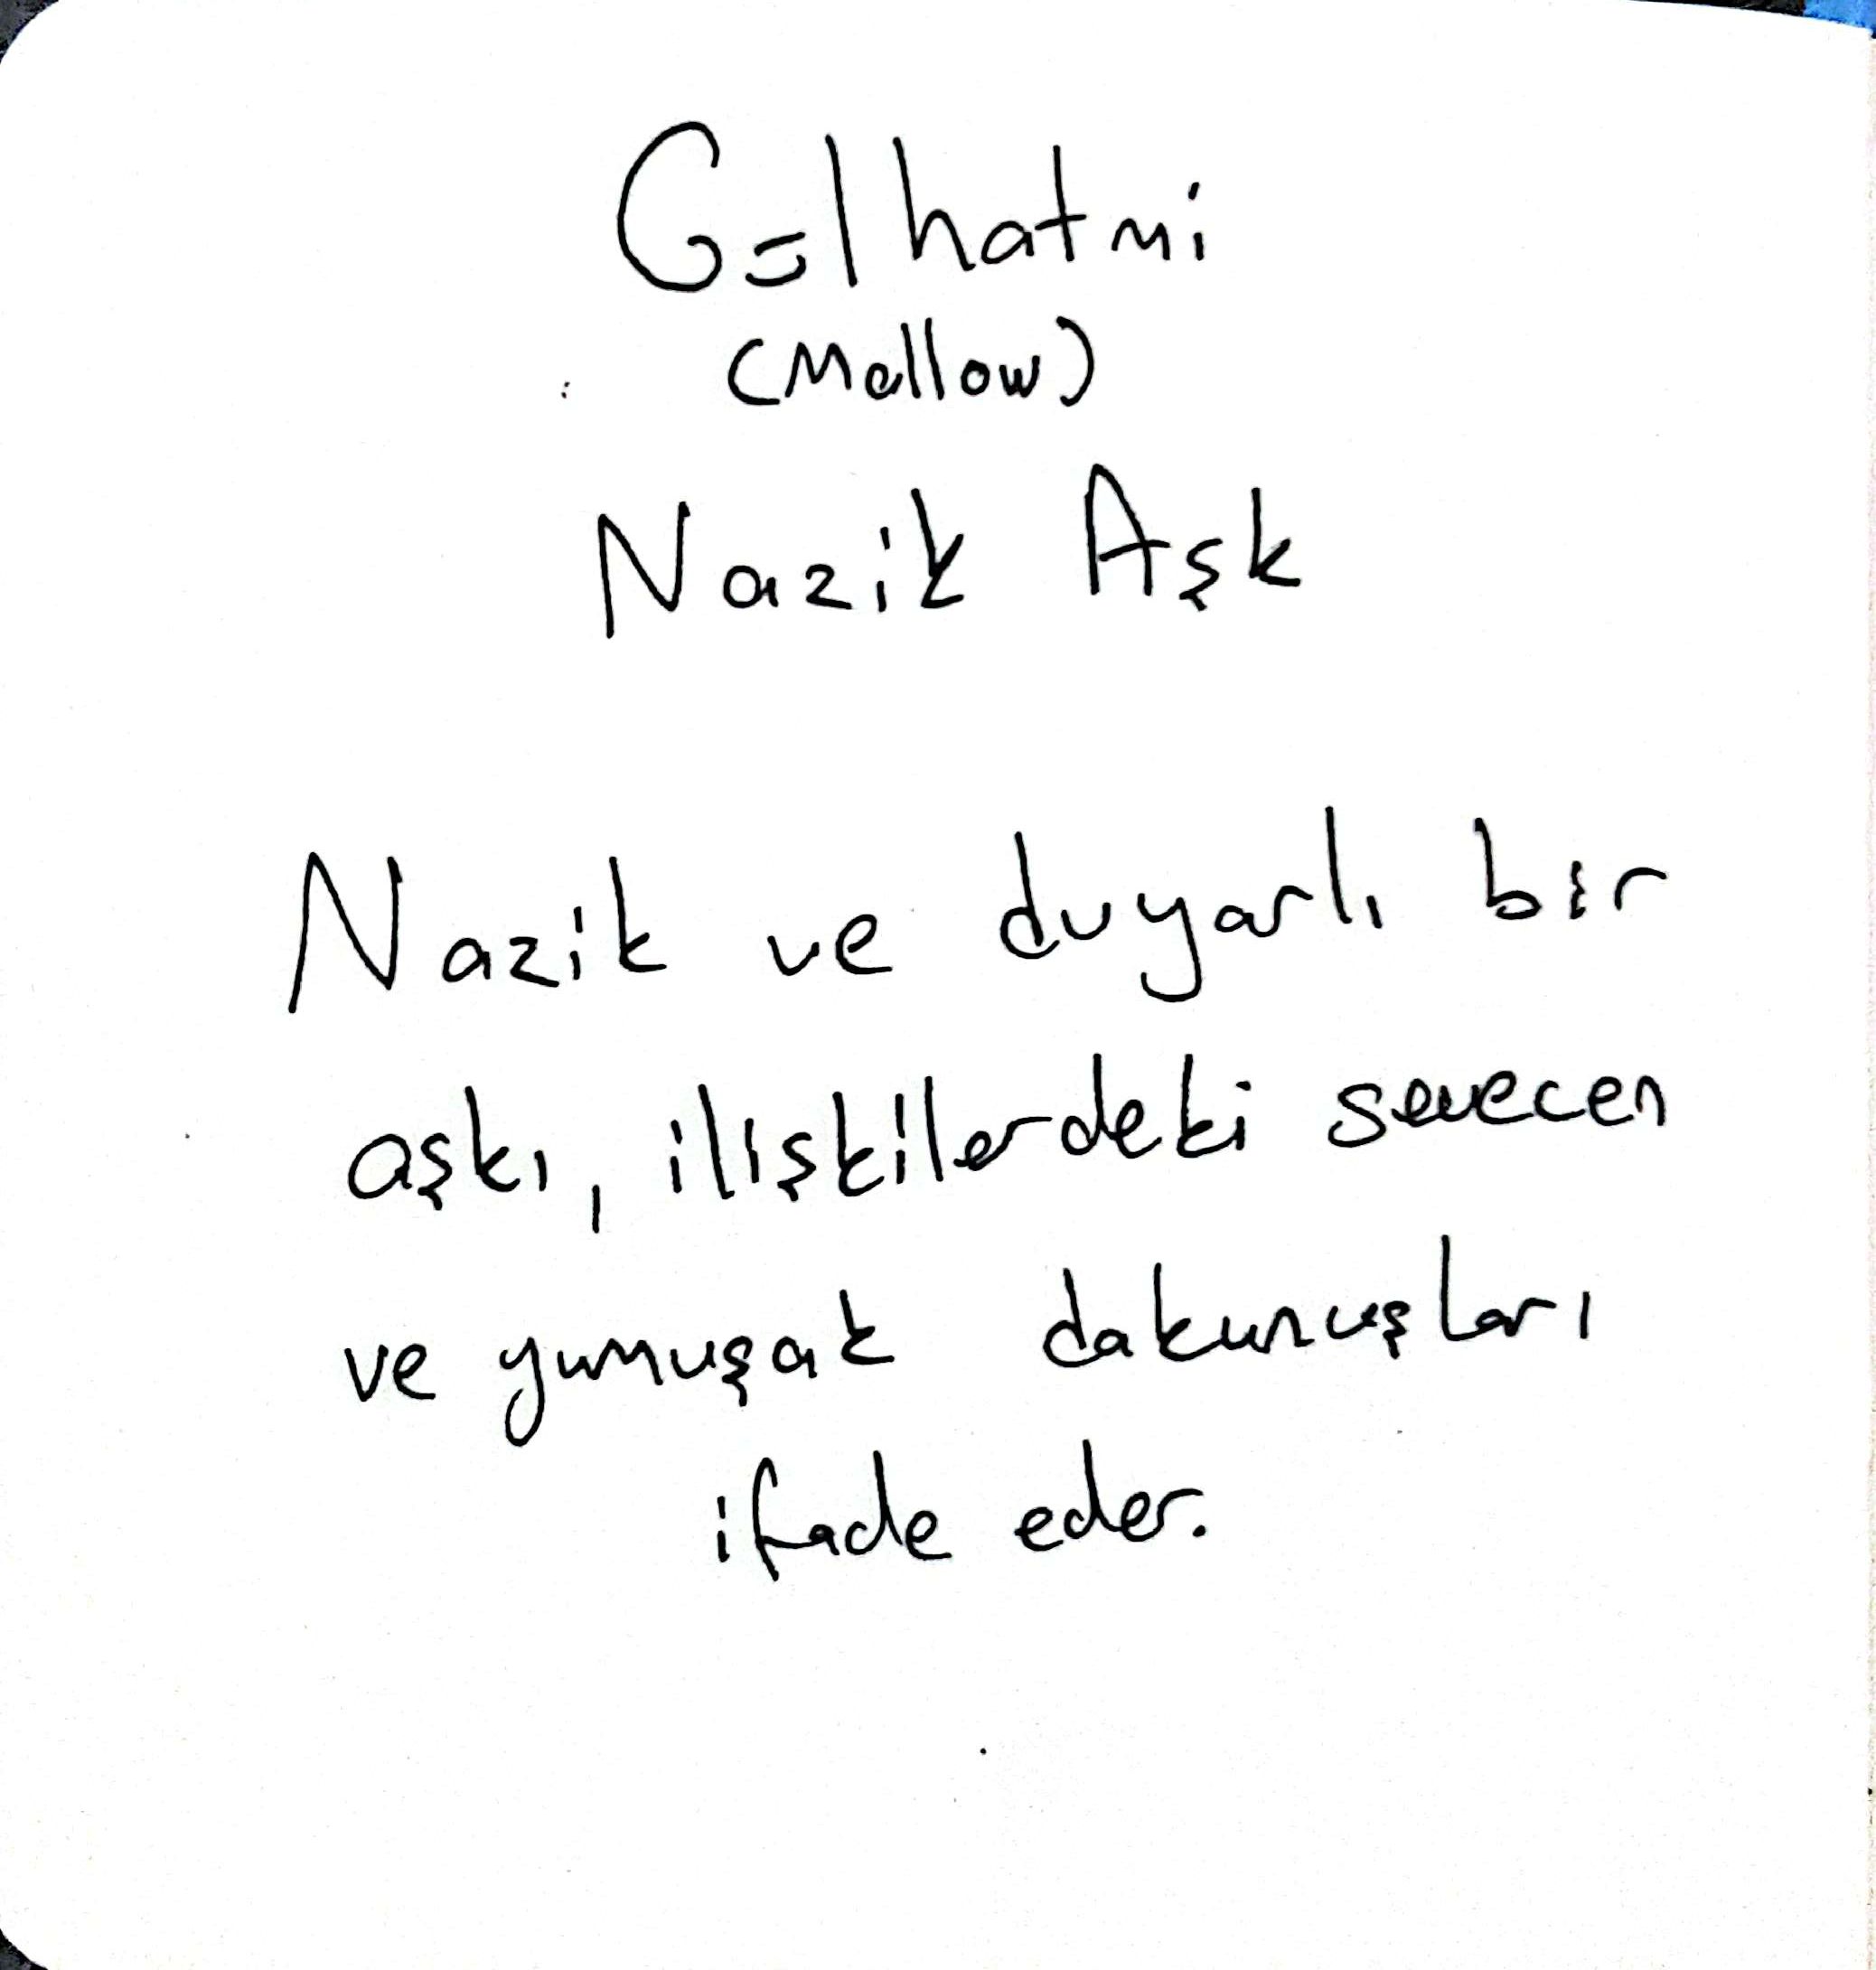 Gülhatmi
(Mallow)
Nazik Aşk
Nazik ve duyarlı bir
aşkı, ilişkilerdeki sevecen
ve yumuşak dakunuşları
ifade eder.